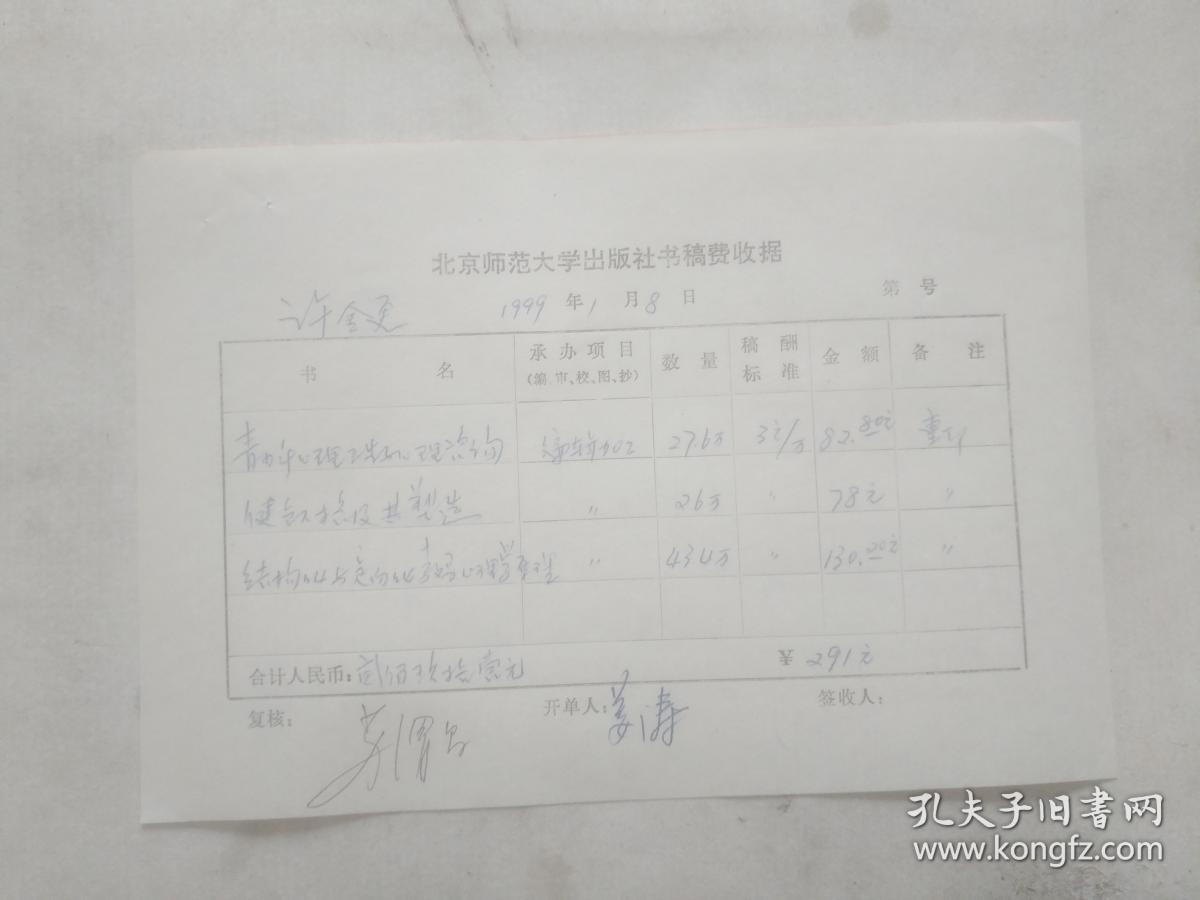 北京师范大学出版社书稿费收据
许金更 1999年1月8日 第 号
书名 承办项目(编.审、校、图、抄) 数量 稿酬标准 金额 备注
青少年心理 心理咨询 编辑加工 27.6万 3元/万 82.80元 重印
健全人格及其塑造 〃 26万 〃 78元 〃
结构化与定向化教学心理学原理 〃 43.4万 〃 130.20元 〃
合计人民币:贰佰玖拾壹元 ¥291元
复核: 开单人:姜涛 签收人:
孔夫子旧书网
www.kongfz.com